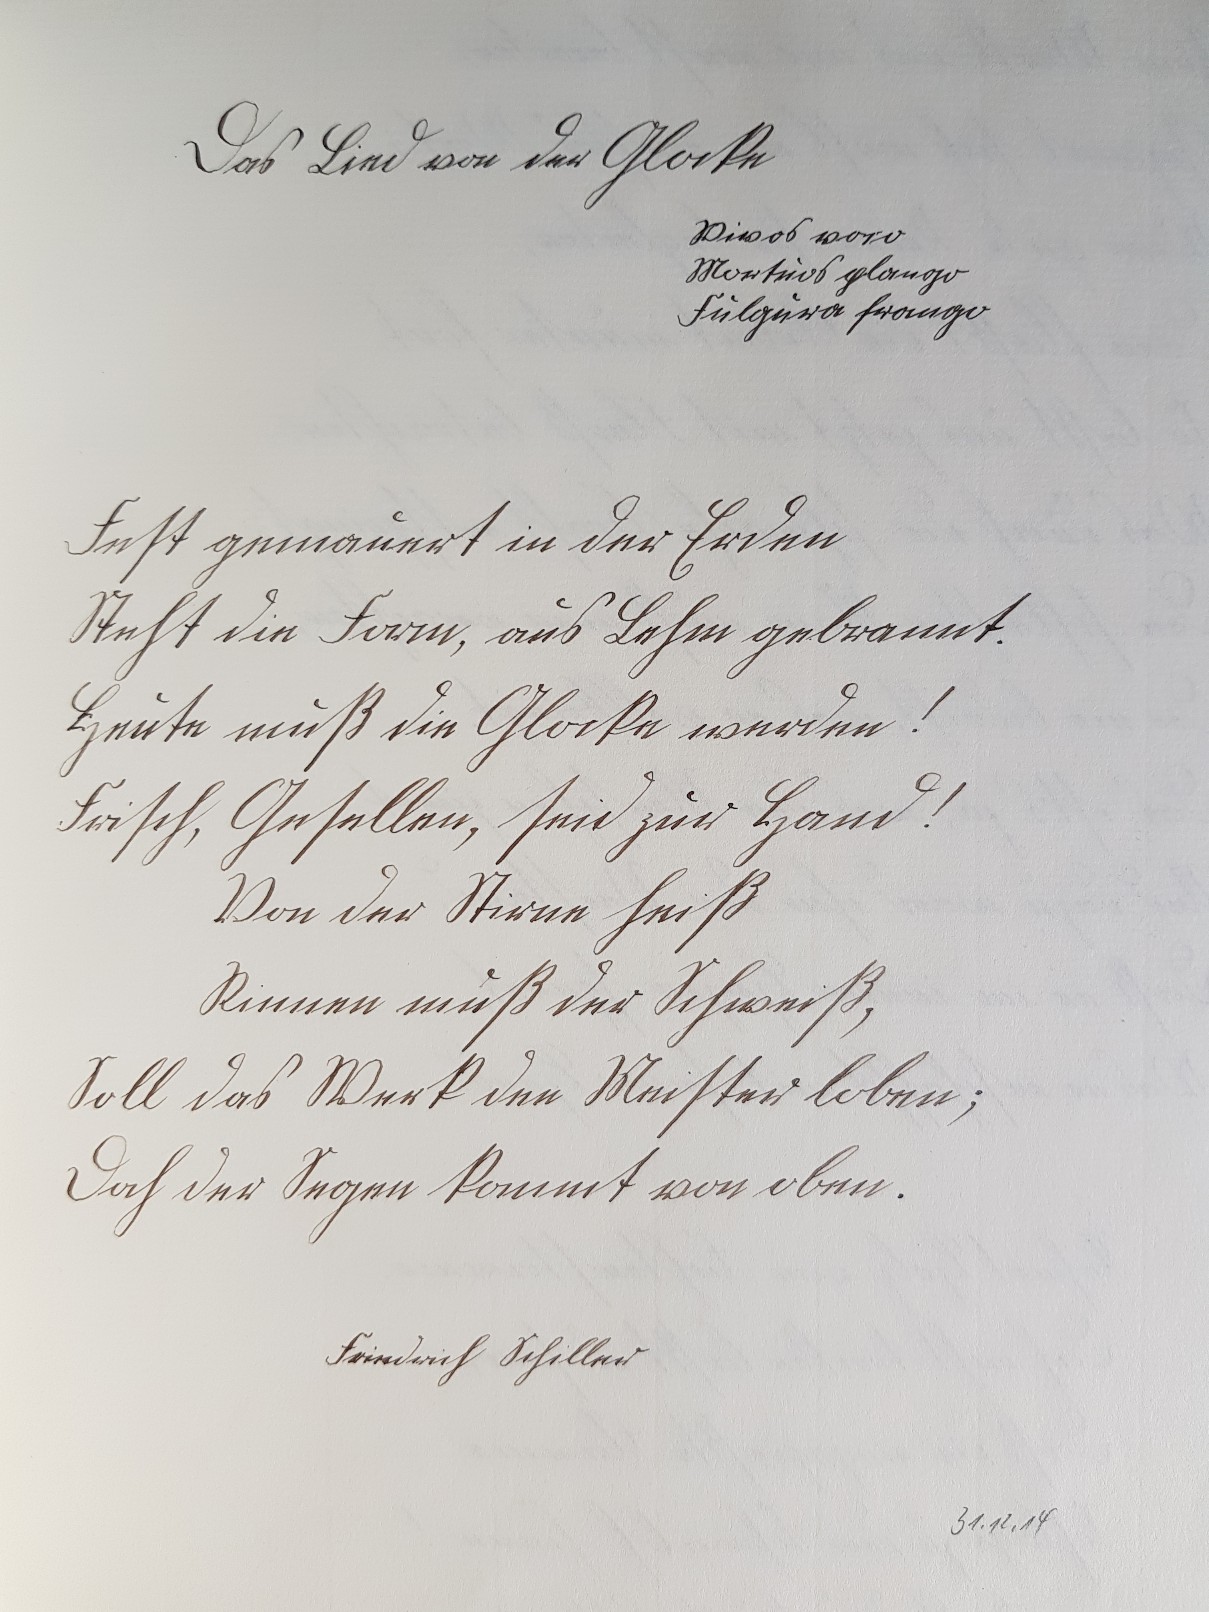 Das Lied von der Glocke
Vivos voco
Mortuos plango
Fulgura frango
Fest gemauert in der Erden
Steht die Form, aus Lehm gebrannt.
Heute muß die Glocke werden!
Frisch, Gesellen, seid zur Hand!
Von der Stirne heiß
Rinnen muß der Schweiß,
Soll das Werk den Meister loben;
Doch der Segen kommt von oben.
Friedrich Schiller
31.12.14